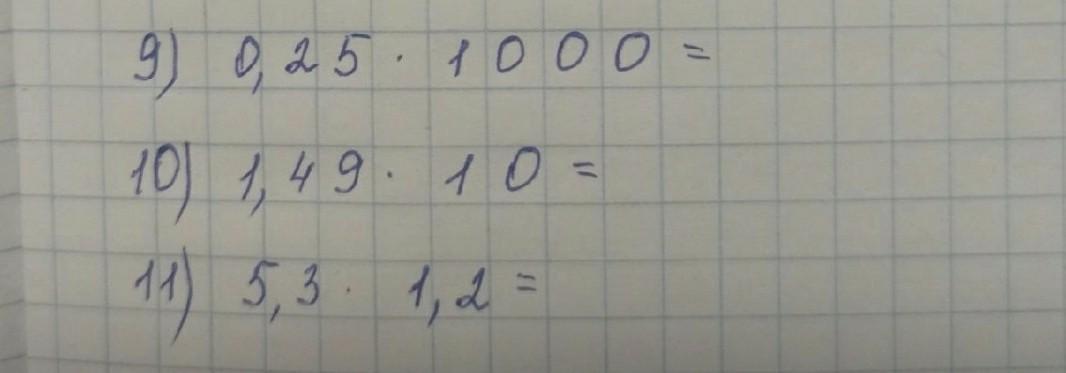 9) 0,25 · 1000 =
10) 1,49 · 10 =
11) 5,3 · 1,2 =